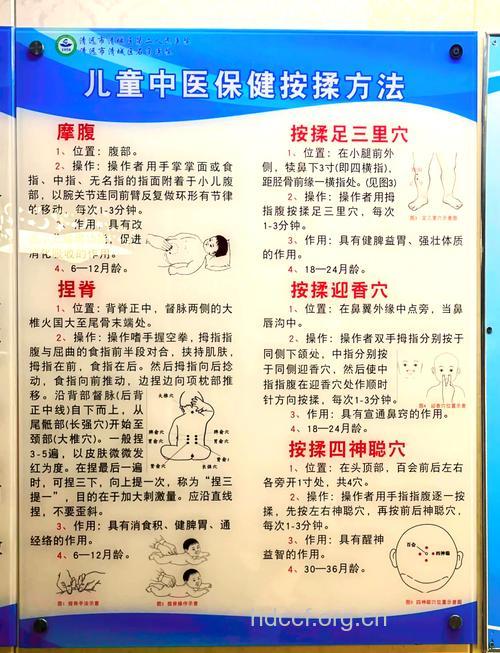 儿童中医保健按揉方法
摩腹
1、位置：腹部。
2、操作：操作者用手掌掌面或食
指、中指、无名指的指面附着于小儿腹
部，以腕关节连同前臂反复做环形有节律
的移动，每次1-3分钟。
作用：具有改
促进
消化吸收的作用。
4、6—12月龄。
捏脊
1、位置：背脊正中，督脉两侧的大
椎火国大至尾骨末端处。
2、操作：操作嗜手握空拳，拇指指
腹与屈曲的食指前半段对合，挟持肌肤，
拇指在前，食指在后。然后拇指向后捻
动，食指向前推动，边捏边向项枕部推
移。沿背部督脉(后背
正中线)自下而上，从
尾骶部(长强穴)开始至
颈部(大椎穴)。一般捏
3-5遍，以皮肤微微发
红为度。在捏最后一遍
时，可捏三下，向上提一次，称为“捏三
提一”，目的在于加大刺激量。应沿直线
捏，不要歪斜。
3、作用：具有消食积、健脾胃、通
经络的作用。
4、6—12月龄。
大椎穴
长强穴
图1 捏脊手法示意
图2 捏脊操作示意
按揉足三里穴
1、位置：在小腿前外
侧，犊鼻下3寸(即四横指)，
距胫骨前缘一横指处。(见图3)
2、操作：操作者用拇
指腹按揉足三里穴，每次
1-3分钟。
3、作用：具有健脾益胃、强壮体质
的作用。
4、18—24月龄。
图3 足三里穴示意图
按揉迎香穴
1、位置：在鼻翼外缘中点旁，当鼻
唇沟中。
2、操作：操作者双手拇指分别按于
同侧下颌处，中指分别按
于同侧迎香穴，然后使中
指指腹在迎香穴处作顺时
针方向按揉，每次1-3分钟。
3、作用：具有宣通鼻窍的作用。
4、18—24月龄。
图4 迎香穴位置示意
按揉四神聪穴
1、位置：在头顶部，百会前后左右
各旁开1寸处，共4穴。
2、操作：操作者用手指指腹逐一按
揉，先按左右神聪穴，再按前后神聪穴，
每次1-3分钟。
3、作用：具有醒神
益智的作用。
4、30—36月龄。
百会
四神聪
图5 四神聪穴位置示意图
ndccf.org.cn